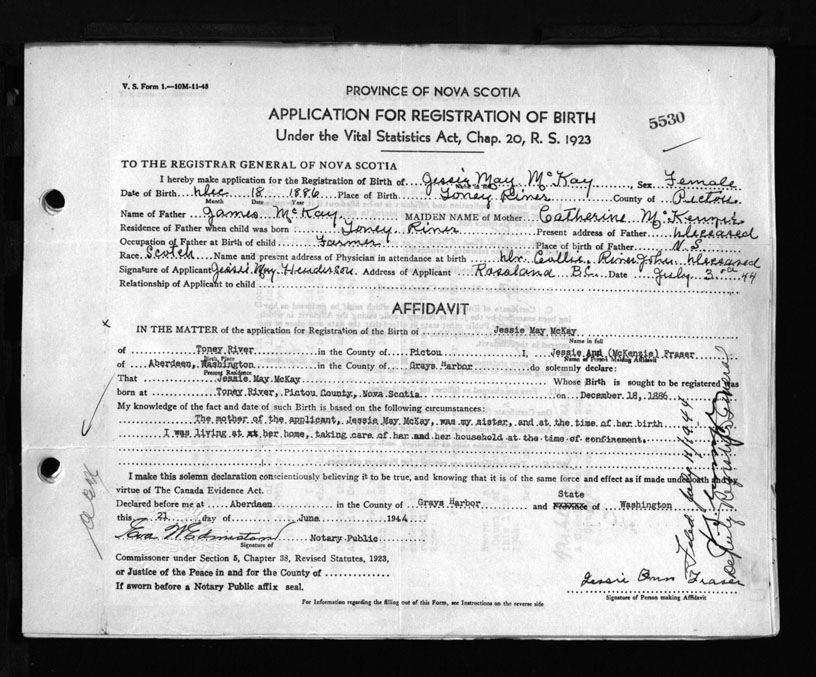 V. S. Form 1.—10M-11-43
PROVINCE OF NOVA SCOTIA
APPLICATION FOR REGISTRATION OF BIRTH
5530
Under the Vital Statistics Act, Chap. 20, R. S. 1923
TO THE REGISTRAR GENERAL OF NOVA SCOTIA
I hereby make application for the Registration of Birth of Jessie May McKay Sex Female
Date of Birth Dec 18 1886 Place of Birth Toney River County of Pictou
Month Date Year
Name of Father James McKay MAIDEN NAME of Mother Catherine McKenzie
Residence of Father when child was born : Toney River Present address of Father Deceased
Occupation of Father at Birth of child Farmer Place of birth of Father N. S.
Race Scotch Name and present address of Physician in attendance at birth Dr. Collie, River John, Deceased
Signature of Applicant Jessie May Henderson Address of Applicant Roseland B.C. Date July 3rd 44
Relationship of Applicant to child
AFFIDAVIT
x
IN THE MATTER of the application for Registration of the Birth of Jessie May McKay
Name in full
of Toney River in the County of Pictou I, Jessie Ann (McKenzie) Fraser
Birth Place Name of Person Making Affidavit
of Aberdeen, Washington in the County of Grays Harbor do solemnly declare:
Present Residence
That Jessie May McKay Whose Birth is sought to be registered was
born at Toney River, Pictou County, Nova Scotia on December 18, 1886.
My knowledge of the fact and date of such Birth is based on the following circumstances:
The mother of the applicant, Jessie May McKay, was my sister, and at the time of her birth
I was living at her home, taking care of her and her household at the time of confinement.
I make this solemn declaration conscientiously believing it to be true, and knowing that it is of the same force and effect as if made under oath and by
virtue of The Canada Evidence Act.
State
Declared before me at Aberdeen in the County of Grays Harbor and Province of Washington
this 21 day of June 1944
Eva M Edmiston Notary Public
Signature of
Commissoner under Section 5, Chapter 38, Revised Statutes, 1923,
or Justice of the Peace in and for the County of
If sworn before a Notary Public affix seal.
Jessie Ann Fraser
Signature of Person making Affidavit
For Information regarding the filling out of this Form, see Instructions on the reverse side
Filed July 11/1944
Deputy Registrar General